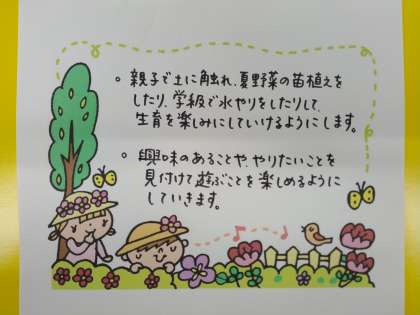 。親子で土に触れ、夏野菜の苗植えを
したり、学級で水やりをしたりして、
生育を楽しみにしていけるようにします。
。興味のあることや、やりたいことを
見付けて遊ぶことを楽しめるように
していきます。